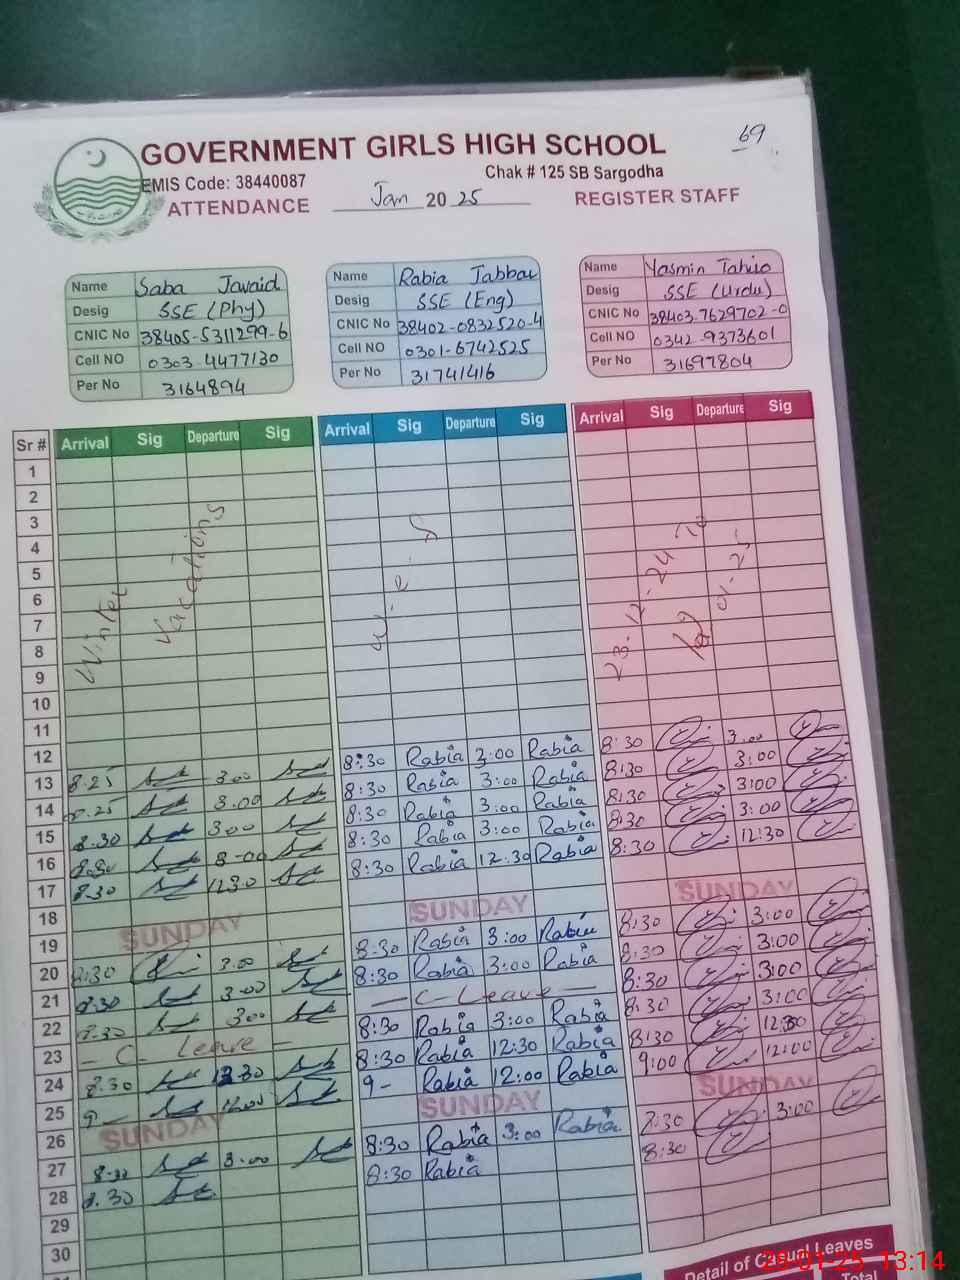 69
GOVERNMENT GIRLS HIGH SCHOOL
EMIS Code: 38440087 Chak # 125 SB Sargodha
ATTENDANCE Jan 20 25 REGISTER STAFF
Name Saba Javaid
Desig SSE (Phy)
CNIC No 38405-5311299-6
Cell NO 0303-4477130
Per No 3164894
Name Rabia Jabbar
Desig SSE (Eng)
CNIC No 38402-0832520-4
Cell NO 0301-6742525
Per No 31741416
Name Yasmin
Desig SSE (Urdu)
CNIC No 38403-7629702-0
Cell NO 0342-9373601
Per No 31697804
Sr # Arrival Sig Departure Sig Arrival Sig Departure Sig Arrival Sig Departure Sig
1
2
3
4
5
6
7
8
9
10
11
12
13
14
15
16
17
18
19
20
21
22
23
24
25
26
27
28
29
30
Winter Vacations
w.e.f
23.12.24 To
8.25 3.00
8.25 3.00
8.30 3.00
8.30 3.00
8.30 12.30
SUNDAY
8:30 3.00
8.30 3.00
8.30 3.00
- C - Leave -
8.30 12.30
9 - 12.00
SUNDAY
8.30 3.00
8.30
8:30 Rabia 3:00 Rabia
8:30 Rabia 3:00 Rabia
8:30 Rabia 3:00 Rabia
8:30 Rabia 3:00 Rabia
8:30 Rabia 12:30 Rabia
SUNDAY
8:30 Rabia 3:00 Rabia
8:30 Rabia 3:00 Rabia
- C - Leave -
8:30 Rabia 3:00 Rabia
8:30 Rabia 12:30 Rabia
9 - Rabia 12:00 Rabia
SUNDAY
8:30 Rabia 3:00 Rabia
8:30 Rabia
8:30 3:00
8:30 3:00
8:30 3:00
8:30 3:00
8:30 12:30
SUNDAY
8:30 3:00
8:30 3:00
8:30 3:00
8:30 3:00
8:30 12:30
9:00 12:00
SUNDAY
8:30 3:00
8:30
Detail of Casual Leaves
Total
28-01-25 13:14